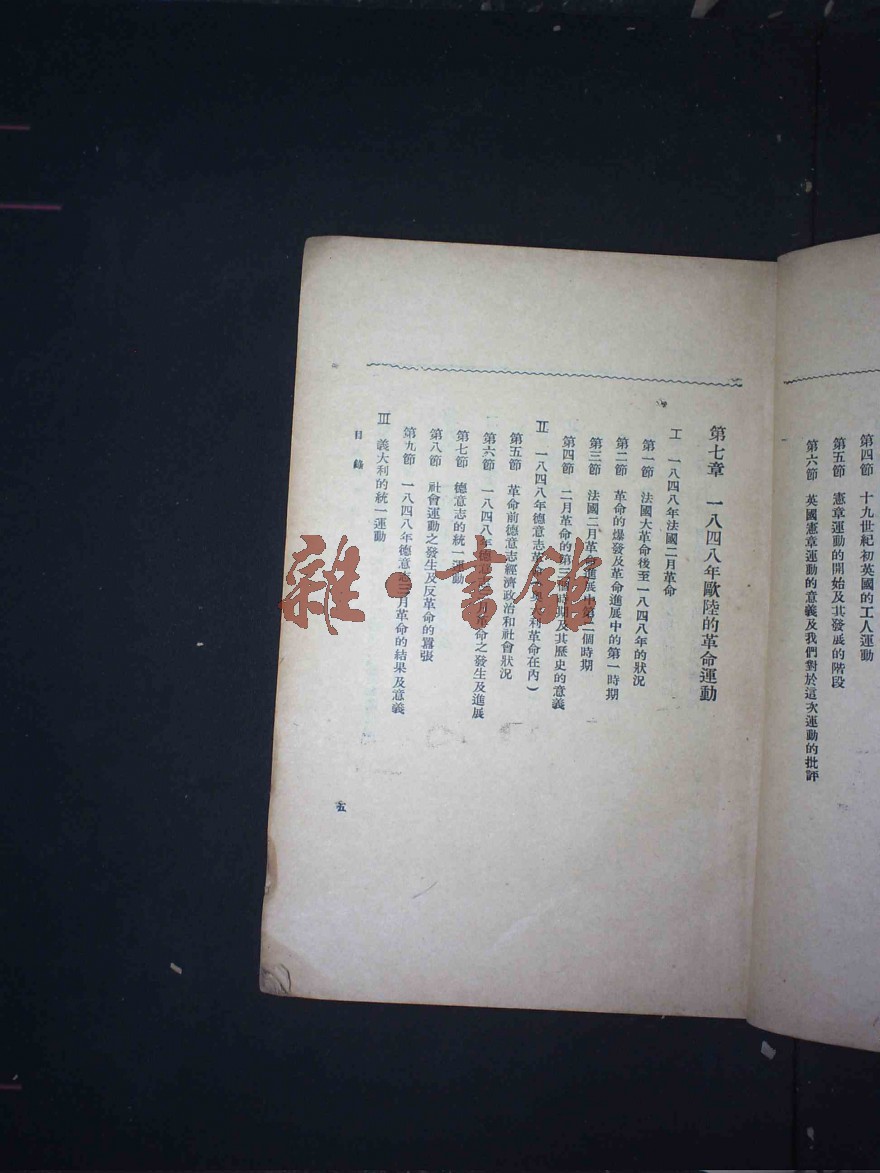 第四節 十九世紀初英國的工人運動
第五節 憲章運動的開始及其發展的階段
第六節 英國憲章運動的意義及我們對於這次運動的批評
第七章 一八四八年歐陸的革命運動
I 一八四八年法國二月革命
第一節 法國大革命後至一八四八年的狀況
第二節 革命的爆發及革命進展中的第一時期
第三節 法國二月革命進展中第二個時期
第四節 二月革命的第三個時期及其歷史的意義
II 一八四八年德意志革命(奧大利革命在內)
第五節 革命前德意志經濟政治和社會狀況
第六節 一八四八年德意志三月革命之發生及進展
第七節 德意志的統一運動
第八節 社會運動之發生及反革命的囂張
第九節 一八四八年德意志三月革命的結果及意義
III 義大利的統一運動
目錄
五
雜·書館